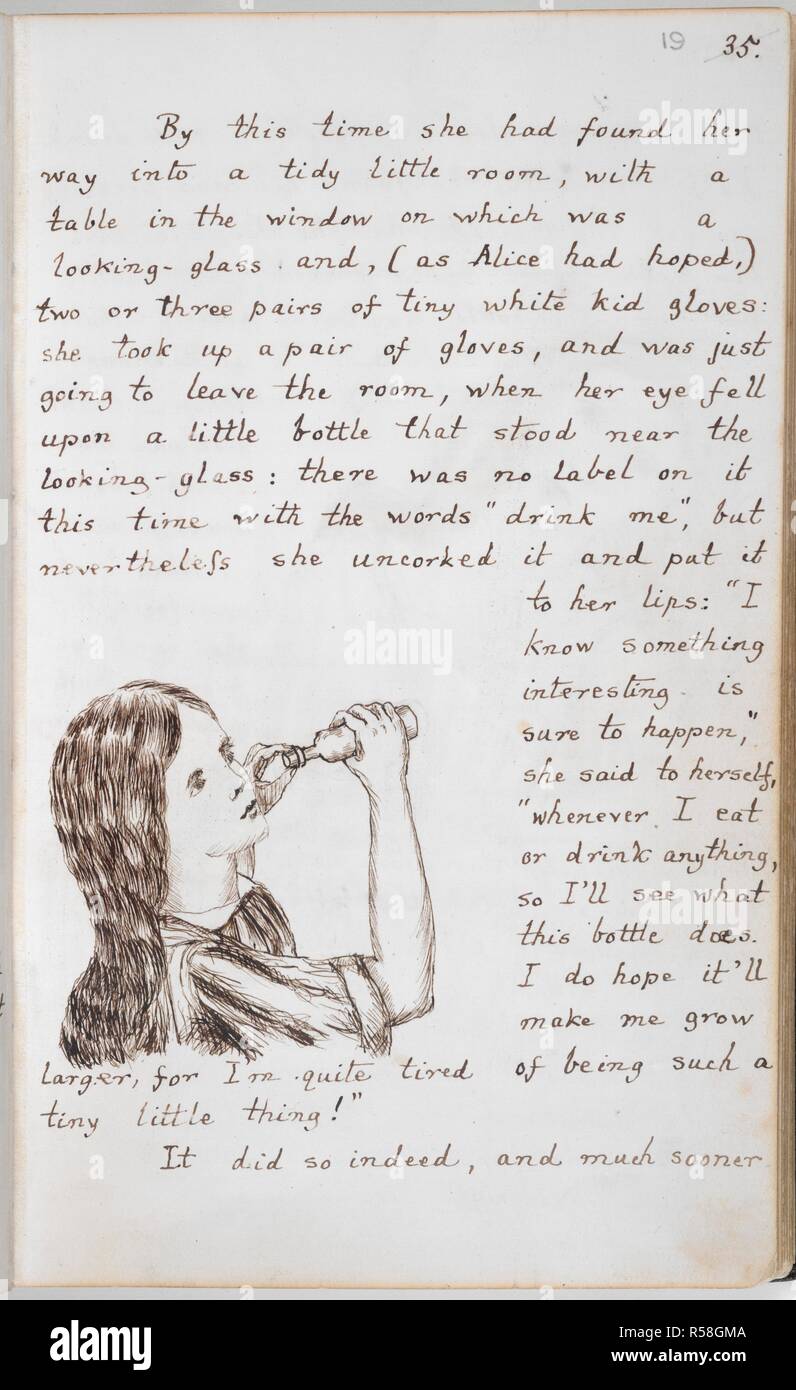 19 35.
By this time she had found her
way into a tidy little room, with a
table in the window on which was a
looking-glass and, (as Alice had hoped,)
two or three pairs of tiny white kid gloves:
she took up a pair of gloves, and was just
going to leave the room, when her eye fell
upon a little bottle that stood near the
looking-glass: there was no label on it
this time with the words "drink me", but
nevertheleſs she uncorked it and put it
to her lips: "I
know something
interesting is
sure to happen,"
she said to herself,
"whenever I eat
or drink anything,
so I'll see what
this bottle does.
I do hope it'll
make me grow
larger, for I'm quite tired of being such a
tiny little thing!"
It did so indeed, and much sooner
a
alamy
alamy
alamy
a
alamy
Image ID: R58GMA
www.alamy.com